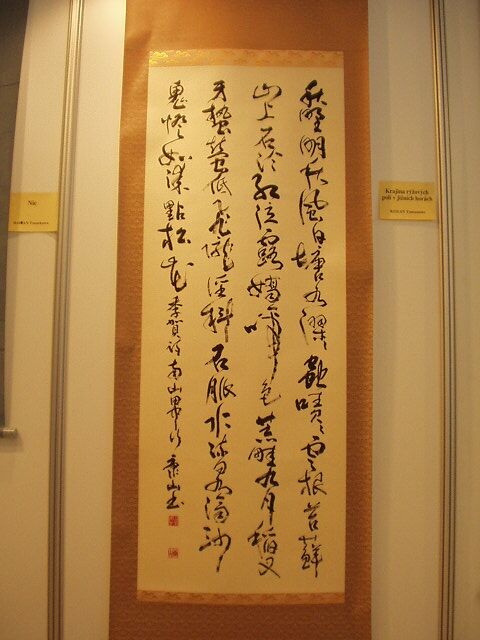 秋野明秋風白塘水漻々蟲嘖々雲根苔蘚
山上石冷紅泣露嬌啼色荒畦九月稻叉
牙蟄螢低飛隴徑斜石脈水流泉滴沙
鬼燈如漆點松花 李賀詩南山田中行 山書
Krajina rýžových
polí v jižních horách
Nic